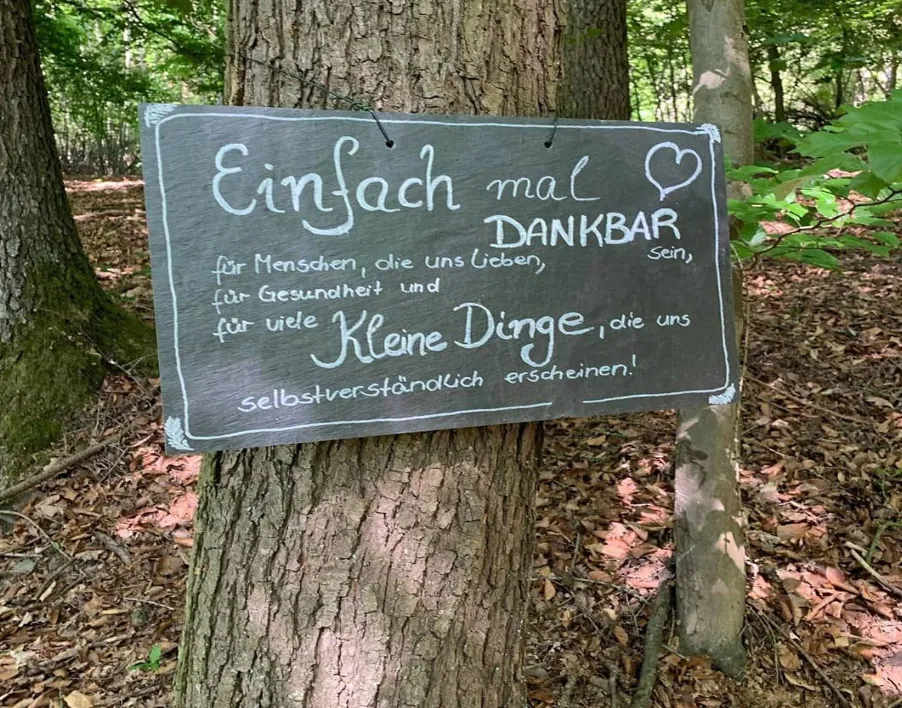 Einfach mal
DANKBAR
sein,
für Menschen, die uns lieben,
für Gesundheit und
für viele Kleine Dinge, die uns
selbstverständlich erscheinen!